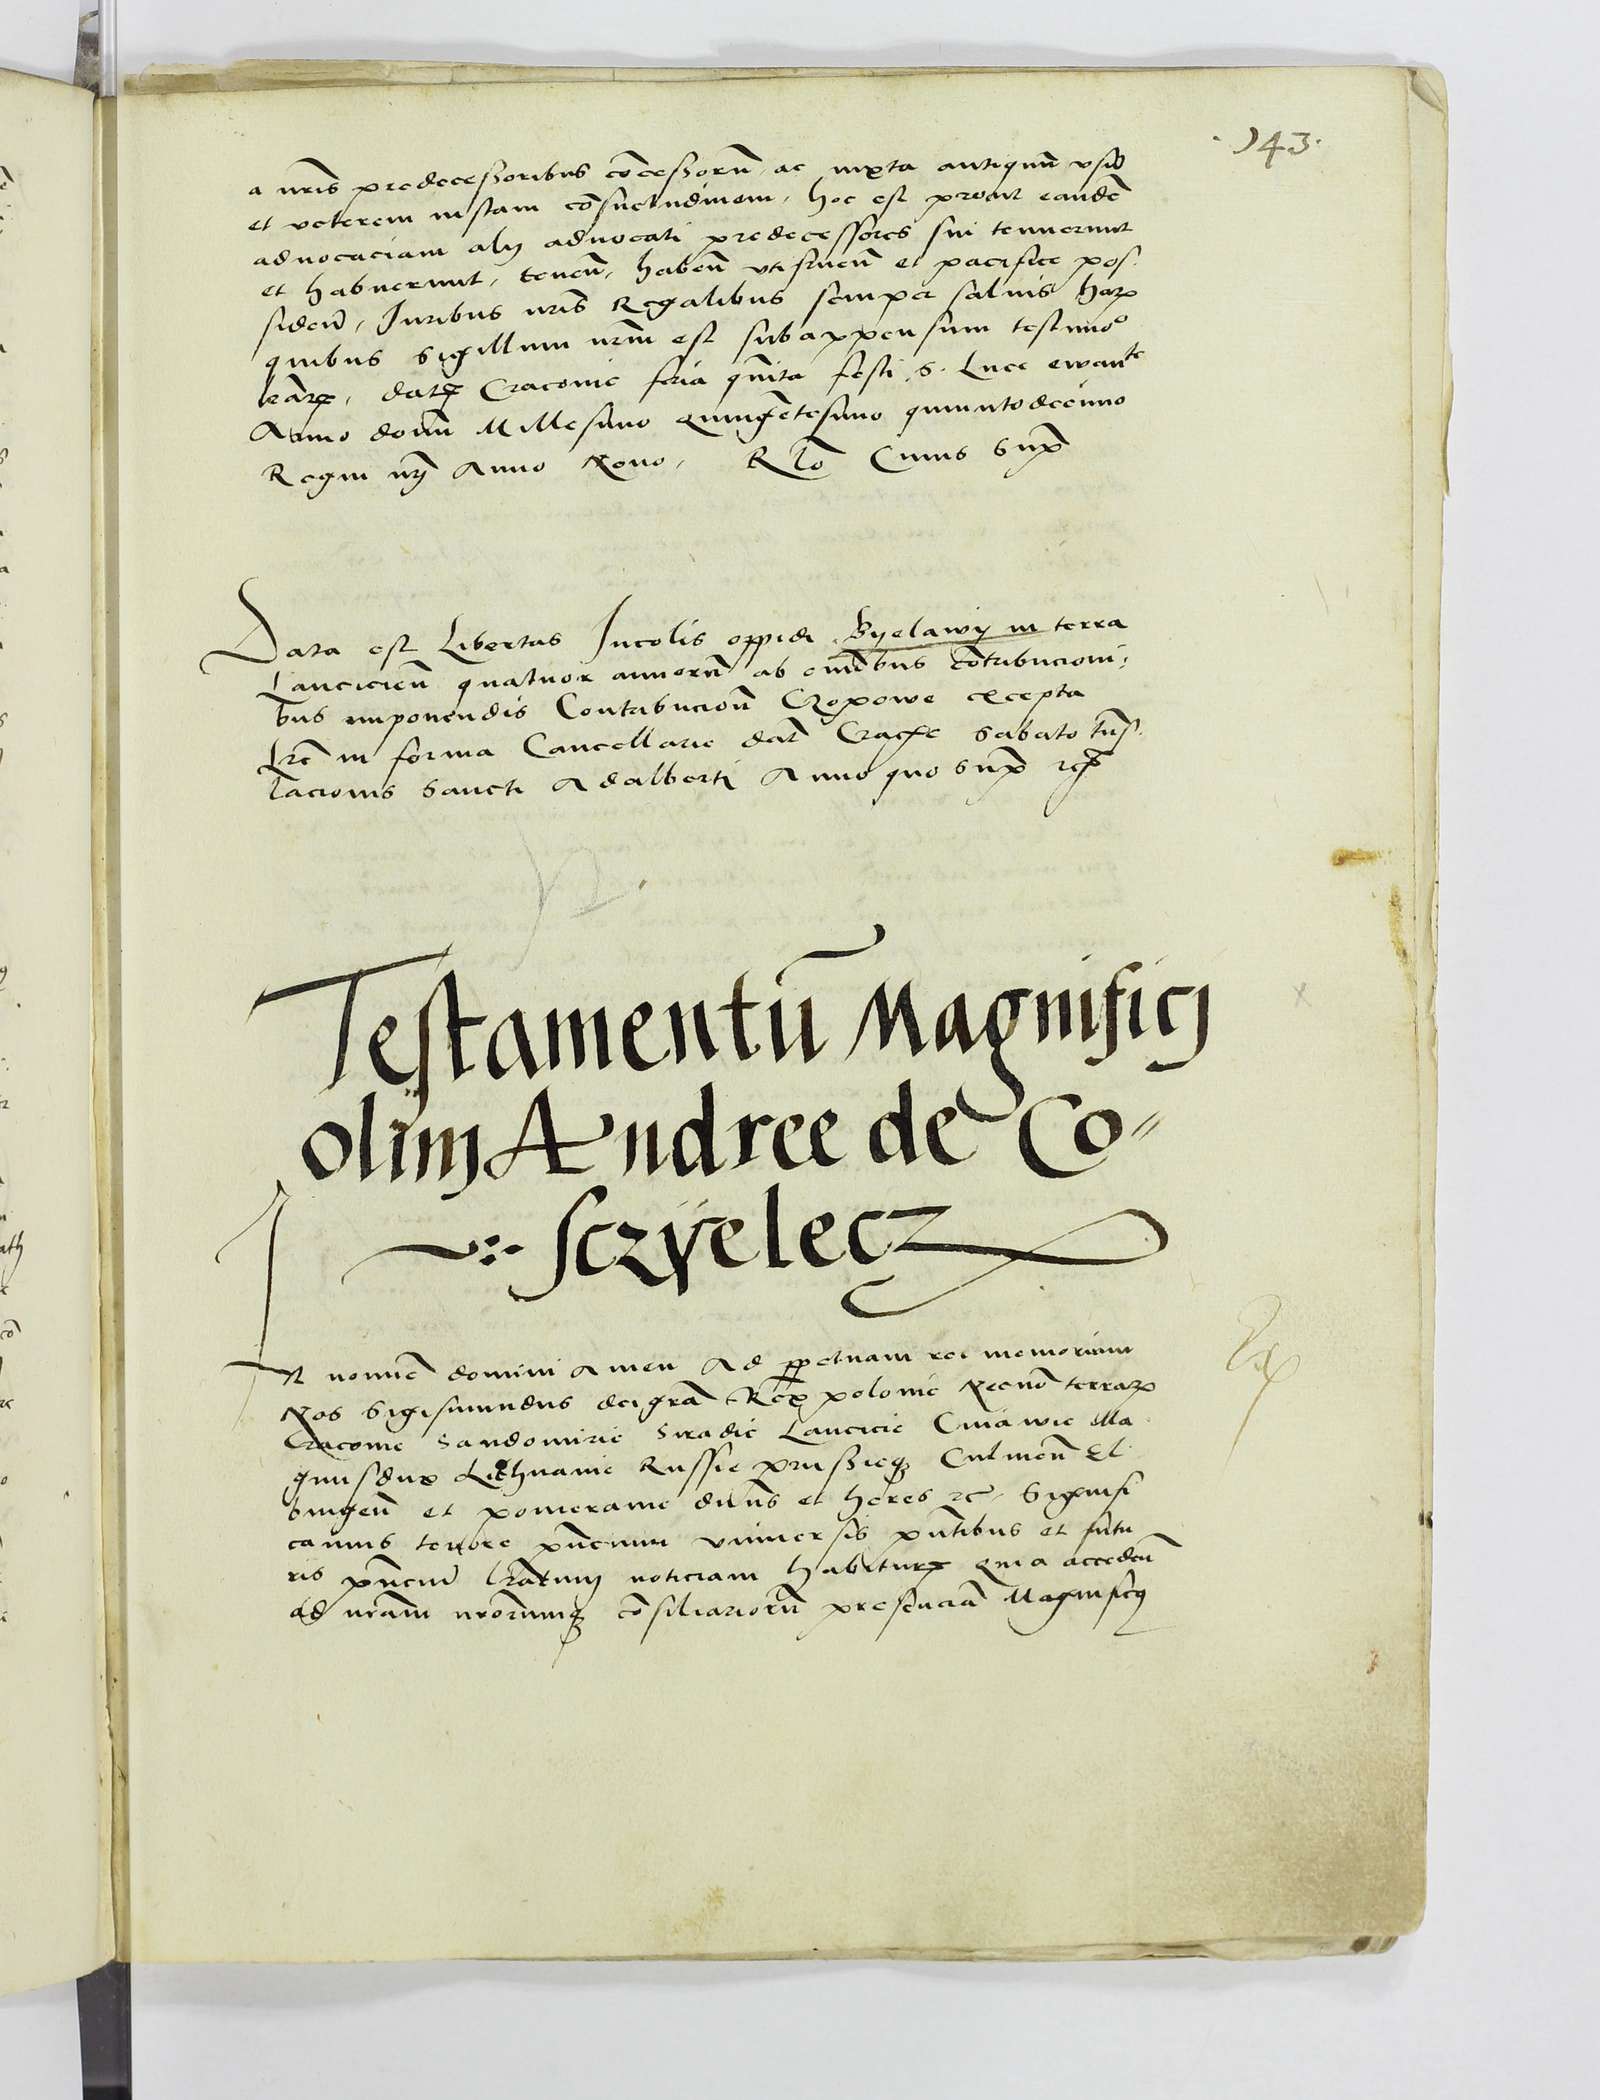 143.
a nr̄is predecessoribus cōcessorū, ac iuxta antiquū vsū
et veterem iustam cōsuetudinem, hoc est prout eandē
advocaciam alij advocati predecessores sui tenuerunt
et habuerunt, tenen̄, haben̄ vtifruen̄ et pacifice pos-
siden̄, Iuribus nr̄is Regalibus semper saluis harꝝ
quibus sigillum nr̄m est subappensum testimoo
lr̄arꝝ, datꝝ Cracovie feria quīta festi S. Luce ewante
Anno domī Millesimo quingētesimo quintodecimo
Regni nr̄j Anno Nono, Rlō Cuius supͣ
Data est Libertas Incolis oppidi Byelawy in terra
Lancicien̄ quatuor annorū ab oīnibus cōtribucioni-
bus imponendis Contribucion̄ Czopowe excepta
Lr̄e in forma Cancellarie dat̄ Crac̄e Sabato tn̄s-
lacionis Sancti Adalberti Anno quo supͣ
Testamentū Magnificj
olim Andree de Co=
sczÿelecz
In nomīe domini Amen Ad ꝑpetuam rei memoriam
Nos Sigismundus dei gr̄a Rex polonie Necnō terrarꝝ
Cracovie Sandomirie Siradie Lancicie Cuiawie Ma
gnusdux Lithuanie Russie prussieqꝫ Culmen̄ El
bingen̄ et pomeranie dn̄us et heres ꝛc̄. Signifi
camus tenore pn̄cium vniuersis pn̄tibus et futu
ris pn̄ciū lr̄arum noticiam habiturꝭ quia acceden̄
ad nr̄am nr̄orumqꝫ cōsiliariorū presenciā Magnificꝰ